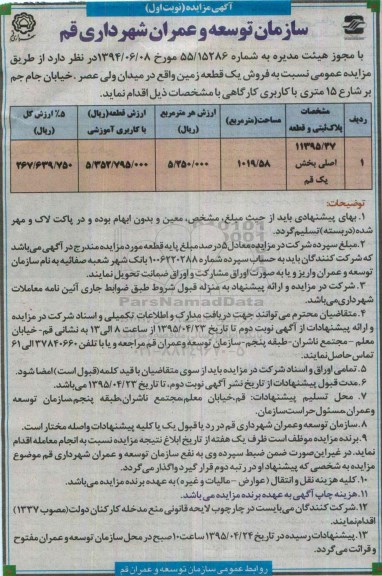 آگهی مزایده (نوبت اول)
سازمان توسعه و عمران شهرداری قم
با مجوز هیئت مدیره به شماره ۵۵/۱۵۲۸۶ مورخ ۱۳۹۴/۰۶/۰۸ در نظر دارد از طریق
مزایده عمومی نسبت به فروش یک قطعه زمین واقع در میدان ولی عصر، خیابان جام جم
بر شارع ۱۵ متری با کاربری کارگاهی با مشخصات ذیل اقدام نماید.
ردیف
مشخصات پلاک ثبتی و قطعه
مساحت (مترمربع)
ارزش هر مترمربع (ریال)
ارزش قطعه (ریال) با کاربری آموزشی
۵٪ ارزش کل (ریال)
۱
۱۱۳۹۵/۳۷ اصلی بخش یک قم
۱۰۱۹/۵۸
۵/۲۵۰/۰۰۰
۵/۳۵۲/۷۹۵/۰۰۰
۲۶۷/۶۳۹/۷۵۰
توضیحات:
۱. بهای پیشنهادی باید از حیث مبلغ، مشخص، معین و بدون ابهام بوده و در پاکت لاک و مهر
شده (دربسته) تسلیم گردد.
۲. مبلغ سپرده شرکت در مزایده معادل ۵ درصد مبلغ پایه قطعه مورد مزایده مندرج در آگهی می‌باشد
که شرکت کنندگان باید به حساب سپرده شماره ۱۰۰۶۲۲۰۲۸۸ بانک شهر شعبه صفائیه به نام سازمان
توسعه و عمران واریز و یا به صورت اوراق مشارکت و اوراق ضمانت تحویل نمایند.
۳. شرکت در مزایده و ارائه پیشنهاد به منزله قبول شروط طبق ضوابط جاری آئین نامه معاملات
شهرداری می‌باشد.
۴. متقاضیان محترم می‌توانند جهت دریافت مدارک و اطلاعات تکمیلی و اسناد شرکت در مزایده
و ارائه پیشنهادات از آگهی نوبت دوم تا تاریخ ۱۳۹۵/۰۴/۲۳ از ساعت ۸ الی ۱۳ به نشانی قم- خیابان
معلم – مجتمع ناشران- طبقه پنجم- سازمان توسعه و عمران قم مراجعه و یا با تلفن ۳۷۸۴۰۶۶۰ الی ۶۱
تماس حاصل نمایند.
۵. تمامی اوراق و اسناد شرکت در مزایده باید از سوی متقاضیان با قید کلمه (قبول است) امضا شود.
۶. مدت قبول پیشنهادات از تاریخ نشر آگهی نوبت دوم، تا تاریخ ۱۳۹۵/۰۴/۲۳ می‌باشد.
۷. محل تسلیم پیشنهادات: قم، خیابان معلم، مجتمع ناشران، طبقه پنجم، سازمان توسعه
وعمران، مسئول حراست سازمان.
۸. سازمان توسعه و عمران شهرداری قم در رد یا قبول یک یا کلیه پیشنهادات واصله مختار است.
۹. برنده مزایده موظف است ظرف یک هفته از تاریخ ابلاغ نتیجه مزایده نسبت به انجام معامله اقدام
نماید. در غیر این صورت ضمن ضبط سپرده وی به نفع سازمان توسعه و عمران شهرداری قم موضوع
مزایده به شخصی که پیشنهاد او در رتبه دوم قرار گیرد واگذار می‌گردد.
۱۰. کلیه هزینه نقل و انتقال (عوارض - مالیات و غیره) به عهده برنده مزایده می‌باشد.
۱۱. هزینه چاپ آگهی به عهده برنده مزایده می باشد.
۱۲. شرکت کنندگان می‌بایست در چارچوب لایحه قانونی منع مداخله کارکنان دولت (مصوب ۱۳۳۷)
اقدام نمایند.
۱۳. پیشنهادات رسیده در تاریخ ۱۳۹۵/۰۴/۲۴ ساعت ۱۰ صبح در محل سازمان توسعه و عمران مفتوح
و قرائت می‌گردد.
روابط عمومی سازمان توسعه و عمران قم